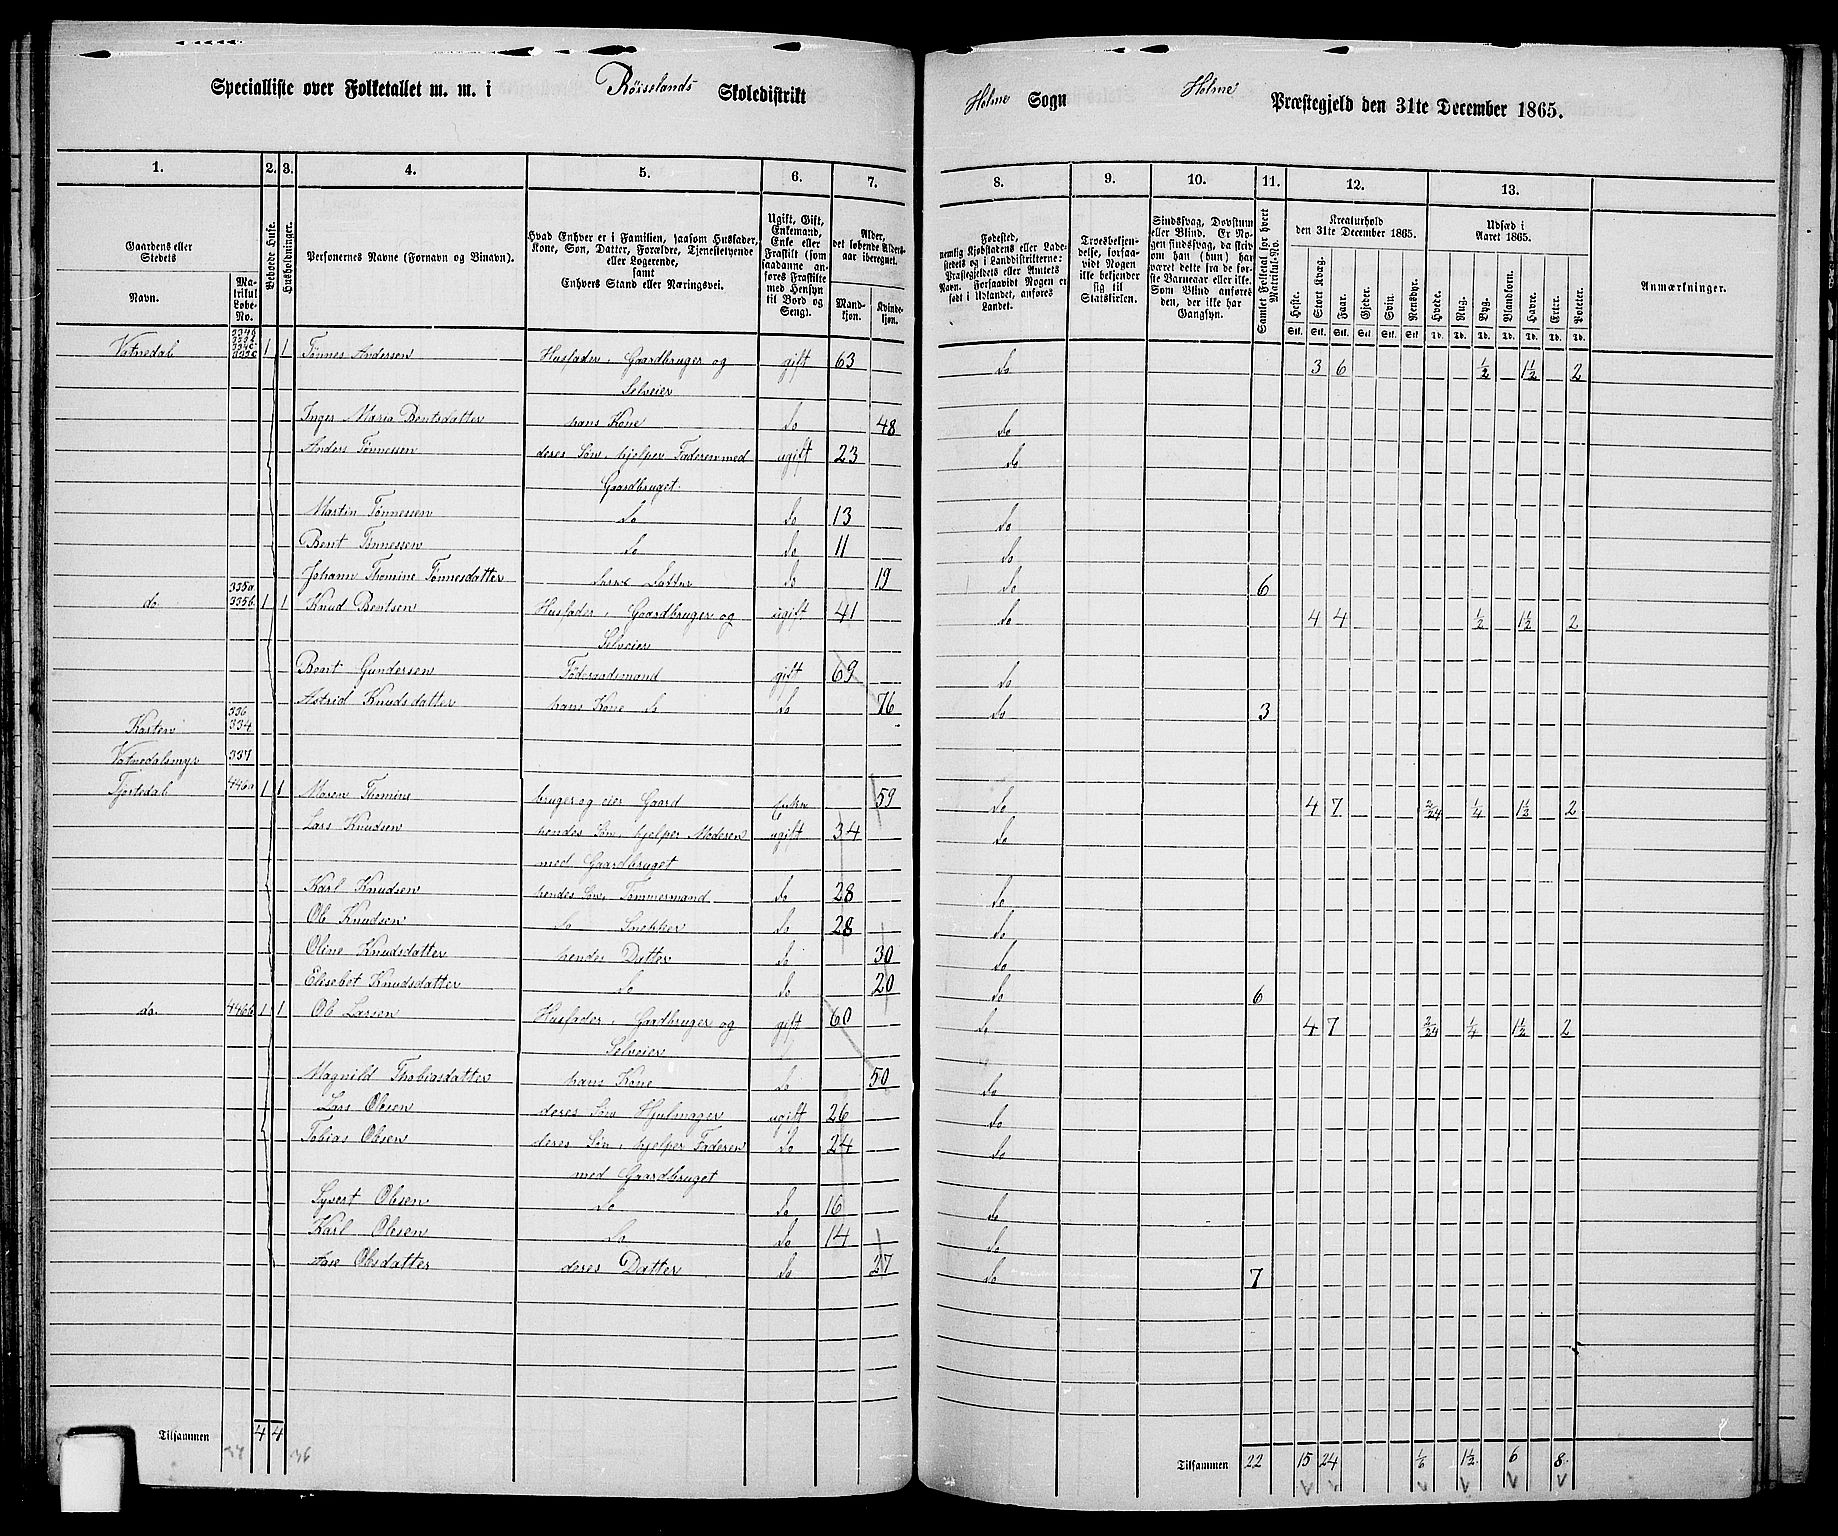 Specialliste over Folketallet m. m. i Röiselands Skoledistrikt
Helme Sogn Holme Præstegjeld den 31te December 1865.
1. 2. 3. 4. 5. 6. 7. 8. 9. 10. 11. 12. 13.
Gaardens eller Stedets
Navn.
Matrikul Løbe-No.
Beboede Huse.
Husholdninger.
Personernes Navne (Fornavn og Binavn).
Hvad Enhver er i Familien, saasom Husfader, Kone, Søn, Datter, Forældre, Tjenestetyende eller Logerende,
samt
Enhvers Stand eller Næringsvei.
Ugift, Gift, Enkemand, Enke eller Fraskilt (som saadanne anføres Fraskilte med Hensyn til Bord og Seng).
Alder, det løbende Aldersaar iberegnet.
Mandkjøn.
Kvindekjøn.
Fødested,
nemlig Kjøbstadens eller Ladestedets og i Landdistrikterne: Præstegjeldets eller Amtets Navn. Forsaavidt Nogen er født i Udlandet, anføres Landet.
Troesbekjendelse, forsaavidt Nogen ikke bekjender sig til Statskirken.
Sindssvag, Døvstum eller Blind. Er Nogen sindssvag, da skrives om han (hun) har været dette fra de første Barneaar eller ikke. Som Blind anføres den, der ikke har Gangsyn.
Samlet Folketal for hvert Matrikul-No.
Kreaturhold
den 31te December 1865.
Heste. Stort Kvæg. Faar. Gjeder. Svin. Rensdyr.
Stk. Stk. Stk. Stk. Stk. Stk.
Udsæd i
Aaret 1865.
Hvede. Rug. Byg. Blandkorn. Havre. Erter. Poteter.
Td. Td. Td. Td. Td. Td. Td.
Anmærkninger.
Vatnedal 1 1 Tønnes Andersen Husfader, Gaardbruger og gift 63 do 3 6 ½ 1½ 2
Selveier
Inger Maria Bentsdatter hans Kone do 48 do
Anders Tønnessen deres Søn, hjelper Faderen med ugift 23 do
Gaardbruget.
Martin Tønnessen do do 13 do
Bent Tønnessen do do 11 do
Johann Thomine Tønnesdatter deres Datter do 19 do 6
335a
do. 335b 1 1 Knud Bentsen Husfader, Gaardbruger og ugift 41 do 4 4 ½ 1½ 2
Selveier
Bent Gundersen Föderaadsmand gift 69 do
Astrid Knudsdatter hans Kone do do 76 do 3
336
334
Vatnedalsmyr 337
446a 1 1 Maren Thomine bruger og eier Gaard Enke 59 do 4 7 2/24 ¼ 1½ 2
Lars Knudsen hendes Søn, hjelper Moderen ugift 34 do
med Gaardbruget
Karl Knudsen hendes Søn, Tømmermand do 28 do
Ole Knudsen do Snekker do 28 do
Oline Knudsdatter hendes Datter do 30 do
Elisebet Knudsdatter do do 20 do 6
do. 446b 1 1 Ole Larsen Husfader, Gaardbruger og gift 60 do 4 7 2/24 ¼ 1½ 2
Selveier
Magnild Thobiasdatter hans Kone do 50 do
Lars Olsen deres Søn Hjulmager ugift 26 do
Tobias Olsen deres Søn, hjelper Faderen do 24 do
med Gaardbruget
Syvert Olsen do do 16 do
Karl Olsen do do 14 do
Aase Olsdatter deres Datter do 27 do 7
Tilsammen 4 4
36
Tilsammen 22 15 24 1/6 1½ 6 8